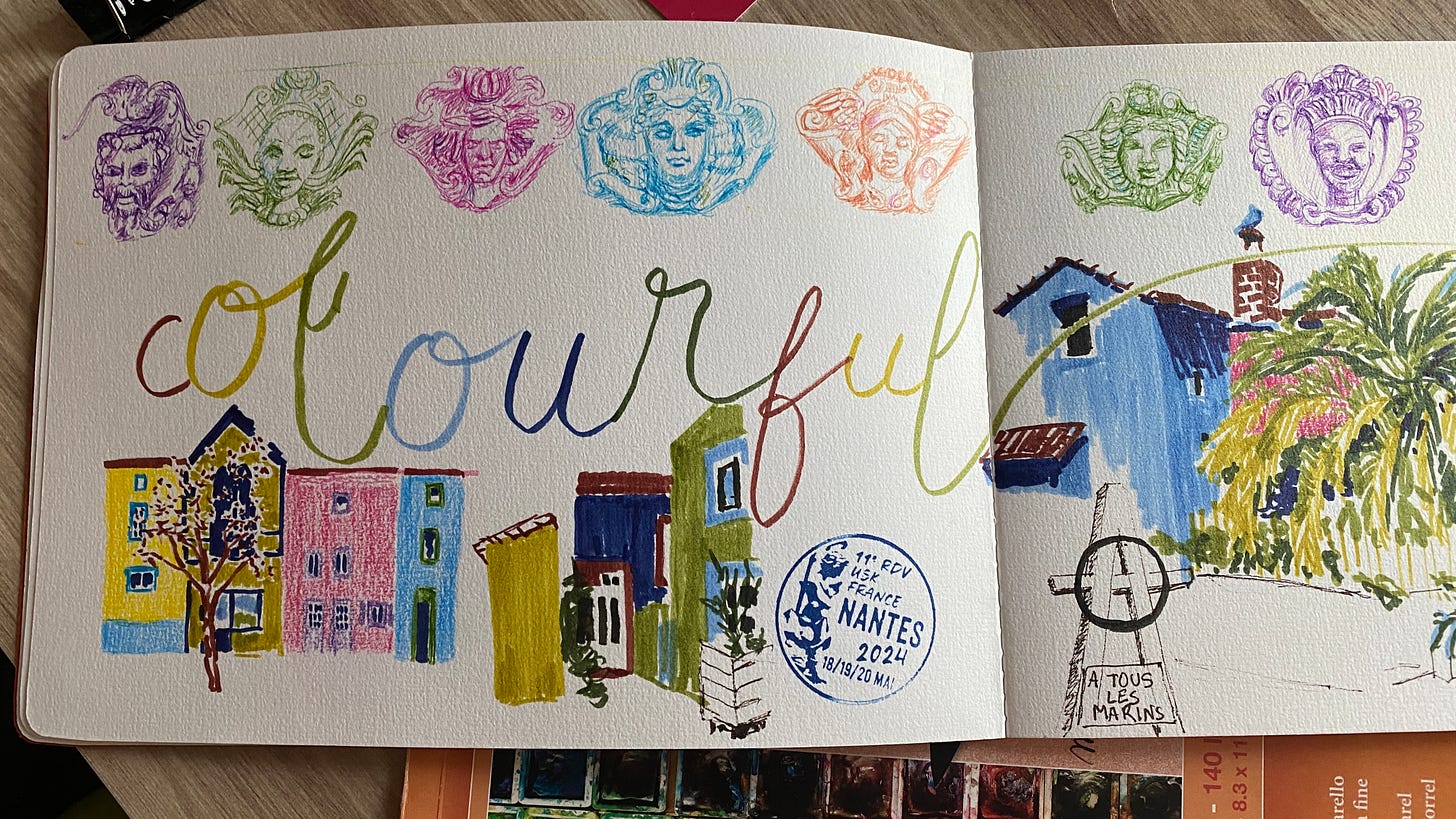 colourful
11e RDV
USK
FRANCE
NANTES
2024
18/19/20 MAI
A TOUS
LES
MARINS
- 140
8.3 x 11